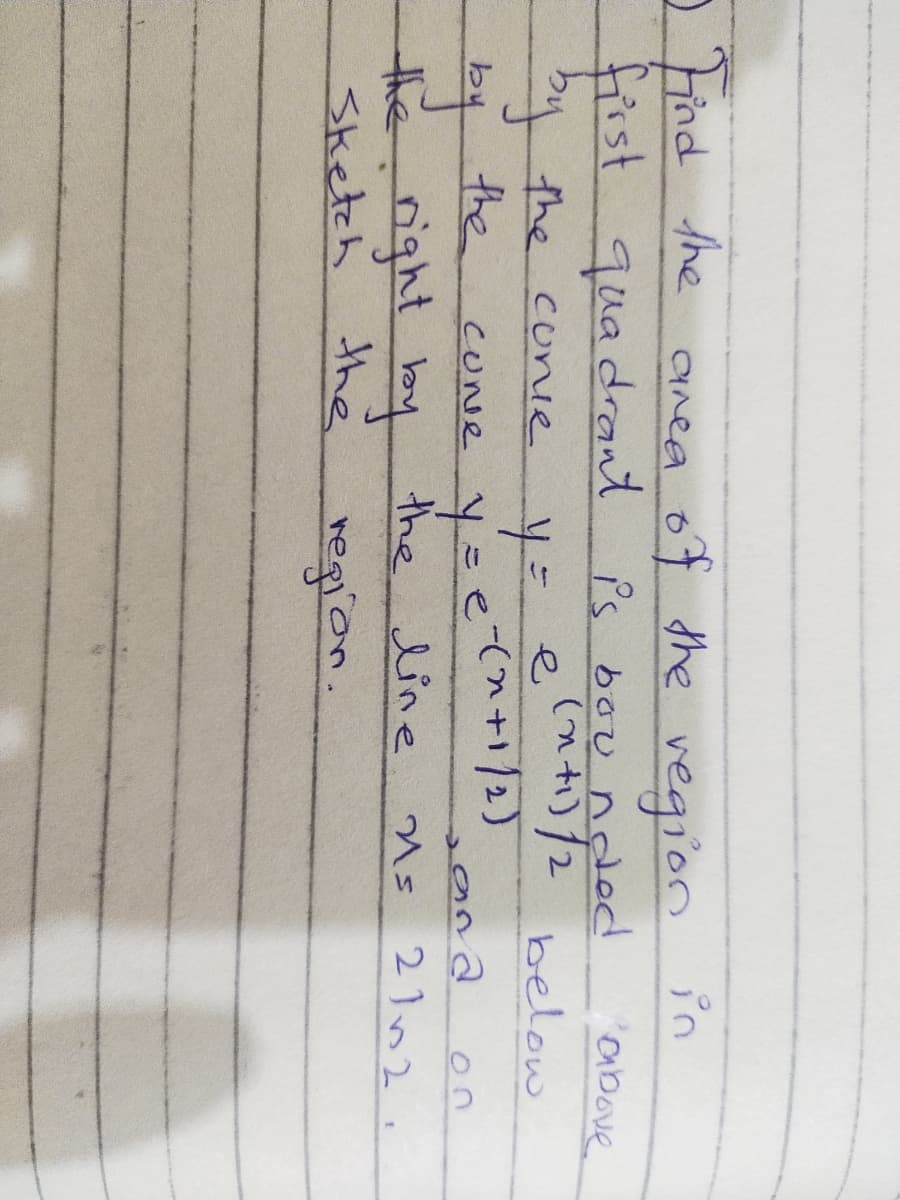 ) Find the area of the region in
first quadrant is bounded above
by the curve y = e^(x+1)/2 below
by the curve y = e^-(x+1/2), and on
the right by the line x = 2ln2.
Sketch the region.